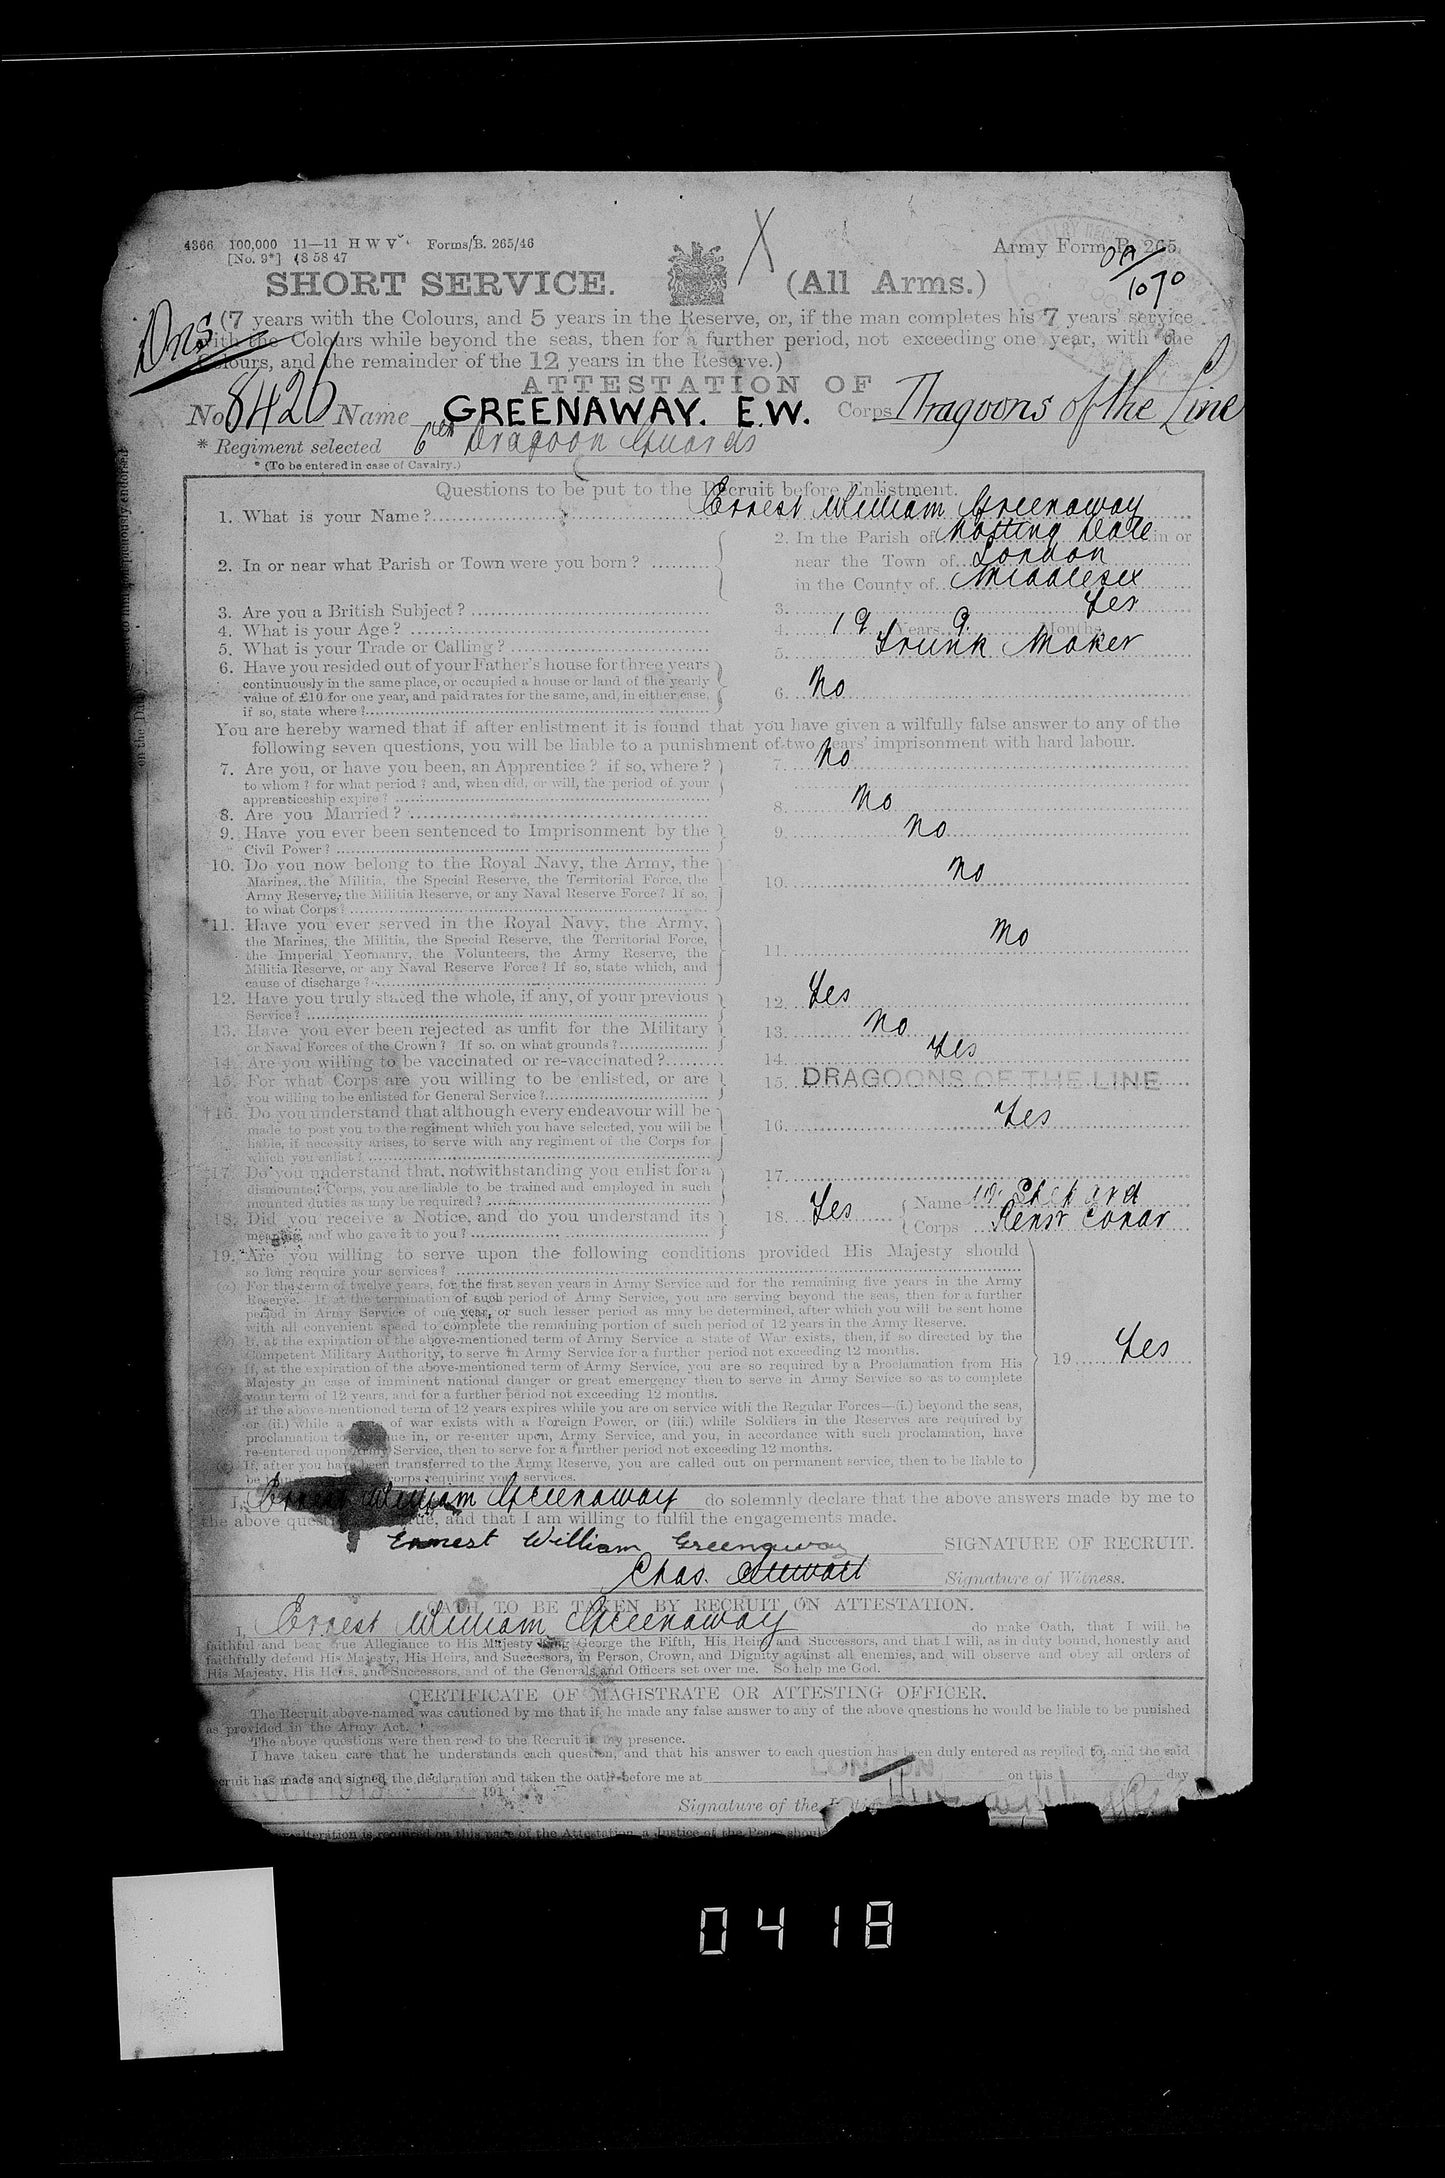 4366 100,000 11—11 H W V Forms/B. 265/46
[No. 9*] (8 58 47
Army Form B. 265
OA/1070
SHORT SERVICE. (All Arms.)
Dns
(7 years with the Colours, and 5 years in the Reserve, or, if the man completes his 7 years' service
with the Colours while beyond the seas, then for a further period, not exceeding one year, with the
Colours, and the remainder of the 12 years in the Reserve.)
ATTESTATION OF
No 8426 Name GREENAWAY. E.W. Corps Dragoons of the Line
* Regiment selected 6th Dragoon Guards
* (To be entered in case of Cavalry.)
Questions to be put to the Recruit before Enlistment.
1. What is your Name? Ernest William Greenaway
2. In or near what Parish or Town were you born?
2. In the Parish of Notting Dale in or
near the Town of London
in the County of Middlesex
3. Are you a British Subject? 3. Yes
4. What is your Age? 4. 19 Years 9 Months
5. What is your Trade or Calling? 5. Trunk Maker
6. Have you resided out of your Father's house for three years
continuously in the same place, or occupied a house or land of the yearly
value of £10 for one year, and paid rates for the same, and, in either case,
if so, state where? 6. No
You are hereby warned that if after enlistment it is found that you have given a wilfully false answer to any of the
following seven questions, you will be liable to a punishment of two years' imprisonment with hard labour.
7. Are you, or have you been, an Apprentice? if so, where? 7. No
to whom? for what period? and, when did, or will, the period of your
apprenticeship expire?
8. Are you Married? 8. No
9. Have you ever been sentenced to Imprisonment by the 9. No
Civil Power?
10. Do you now belong to the Royal Navy, the Army, the
Marines, the Militia, the Special Reserve, the Territorial Force, the
Army Reserve, the Militia Reserve, or any Naval Reserve Force? If so,
to what Corps? 10. No
*11. Have you ever served in the Royal Navy, the Army,
the Marines, the Militia, the Special Reserve, the Territorial Force,
the Imperial Yeomanry, the Volunteers, the Army Reserve, the
Militia Reserve, or any Naval Reserve Force? If so, state which, and
cause of discharge? 11. No
12. Have you truly stated the whole, if any, of your previous
Service? 12. Yes
13. Have you ever been rejected as unfit for the Military
or Naval Forces of the Crown? If so, on what grounds? 13. No
14. Are you willing to be vaccinated or re-vaccinated? 14. Yes
15. For what Corps are you willing to be enlisted, or are
you willing to be enlisted for General Service? 15. DRAGOONS OF THE LINE
†16. Do you understand that although every endeavour will be
made to post you to the regiment which you have selected, you will be
liable, if necessity arises, to serve with any regiment of the Corps for
which you enlist? 16. Yes
17. Do you understand that, notwithstanding you enlist for a
dismounted Corps, you are liable to be trained and employed in such
mounted duties as may be required? 17.
18. Did you receive a Notice, and do you understand its
meaning, and who gave it to you? 18. Yes Name
Corps
19. Are you willing to serve upon the following conditions provided His Majesty should
so long require your services?
(a) For the term of twelve years, for the first seven years in Army Service and for the remaining five years in the Army
Reserve. If at the termination of such period of Army Service, you are serving beyond the seas, then for a further
period in Army Service of one year, or such lesser period as may be determined, after which you will be sent home
with all convenient speed to complete the remaining portion of such period of 12 years in the Army Reserve.
If, at the expiration of the above-mentioned term of Army Service a state of War exists, then, if so directed by the
Competent Military Authority, to serve in Army Service for a further period not exceeding 12 months.
If, at the expiration of the above-mentioned term of Army Service, you are so required by a Proclamation from His
Majesty in case of imminent national danger or great emergency then to serve in Army Service so as to complete
your term of 12 years, and for a further period not exceeding 12 months.
19 Yes
If the above-mentioned term of 12 years expires while you are on service with the Regular Forces—(i.) beyond the seas,
or (ii.) while a of war exists with a Foreign Power, or (iii.) while Soldiers in the Reserves are required by
proclamation to in, or re-enter upon, Army Service, and you, in accordance with such proclamation, have
re-entered upon Army Service, then to serve for a further period not exceeding 12 months.
If, after you have been transferred to the Army Reserve, you are called out on permanent service, then to be liable to
be corps requiring your services.
I, Ernest William Greenaway do solemnly declare that the above answers made by me to
the above true, and that I am willing to fulfil the engagements made.
Ernest William Greenaway SIGNATURE OF RECRUIT.
Chas. Stewart Signature of Witness.
OATH TO BE TAKEN BY RECRUIT ON ATTESTATION.
I, Ernest William Greenaway do make Oath, that I will be
faithful and bear true Allegiance to His Majesty King George the Fifth, His Heirs and Successors, and that I will, as in duty bound, honestly and
faithfully defend His Majesty, His Heirs, and Successors, in Person, Crown, and Dignity against all enemies, and will observe and obey all orders of
His Majesty, His Heirs, and Successors, and of the Generals and Officers set over me. So help me God.
CERTIFICATE OF MAGISTRATE OR ATTESTING OFFICER.
The Recruit above-named was cautioned by me that if he made any false answer to any of the above questions he would be liable to be punished
as provided in the Army Act.
The above questions were then read to the Recruit in my presence.
I have taken care that he understands each question, and that his answer to each question has been duly entered as replied to, and the said
recruit has made and signed the declaration and taken the oath before me at LONDON on this day
OCT 1913 191
Signature of the
alteration is required on this page of the Attestation, a Justice of the Peace should
0418